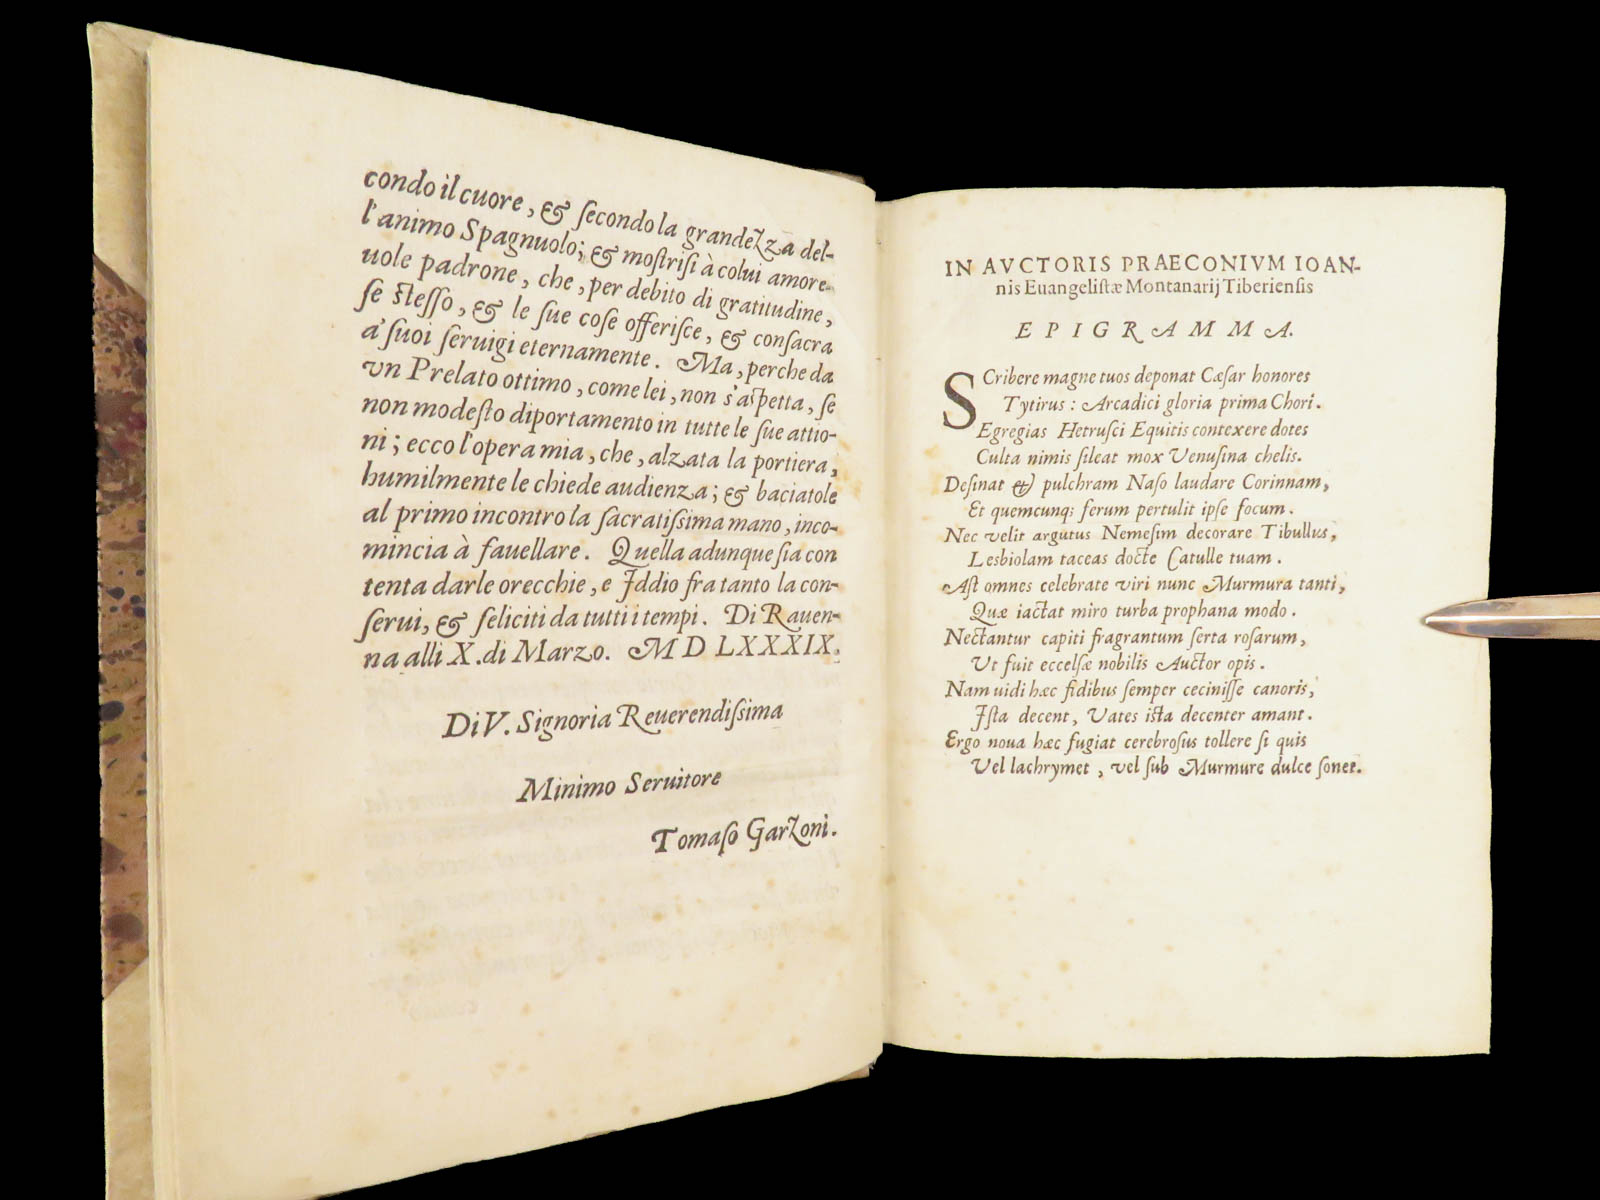 condo il cuore, & ſecondo la grandezza del-
l'animo Spagnuolo; & moſtriſi à colui amore-
uole padrone, che, per debito di gratitudine,
ſe ſteſſo, & le ſue coſe offeriſce, & conſacra
a' ſuoi ſeruigi eternamente. Ma, perche da
vn Prelato ottimo, come lei, non s'aſpetta, ſe
non modeſto diportamento in tutte le ſue attio-
ni; ecco l'opera mia, che, alzata la portiera,
humilmente le chiede audienza; & baciatole
al primo incontro la ſacratiſſima mano, inco-
mincia à fauellare. Quella adunque ſia con
tenta darle orecchie, e Iddio fra tanto la con-
ſerui, & feliciti da tutti i tempi. Di Rauen-
na alli X. di Marzo. MD LXXXIX.
Di V. Signoria Reuerendiſsima
Minimo Seruitore
Tomaſo Garzoni.
IN AVCTORIS PRAECONIVM IOAN-
nis Euangeliſtæ Montanarij Tiberienſis
EPIGRAMMA.
SCribere magne tuos deponat Cæſar honores
Tytirus: Arcadici gloria prima Chori.
Egregias Hetruſci Equitis contexere dotes
Culta nimis ſileat mox Venuſina chelis.
Deſinat & pulchram Naſo laudare Corinnam,
Et quemcunq; ferum pertulit ipſe focum.
Nec velit argutus Nemeſim decorare Tibullus,
Lesbiolam taceas docte Catulle tuam.
Aſt omnes celebrate viri nunc Murmura tanti,
Quæ iactat miro turba prophana modo.
Nectantur capiti fragrantum ſerta roſarum,
Vt fuit eccelſæ nobilis Auctor opis.
Nam uidi hæc fidibus ſemper ceciniſſe canoris,
Iſta decent, Vates iſta decenter amant.
Ergo noua hæc fugiat cerebroſus tollere ſi quis
Vel lachrymet, vel ſub Murmure dulce ſonet.